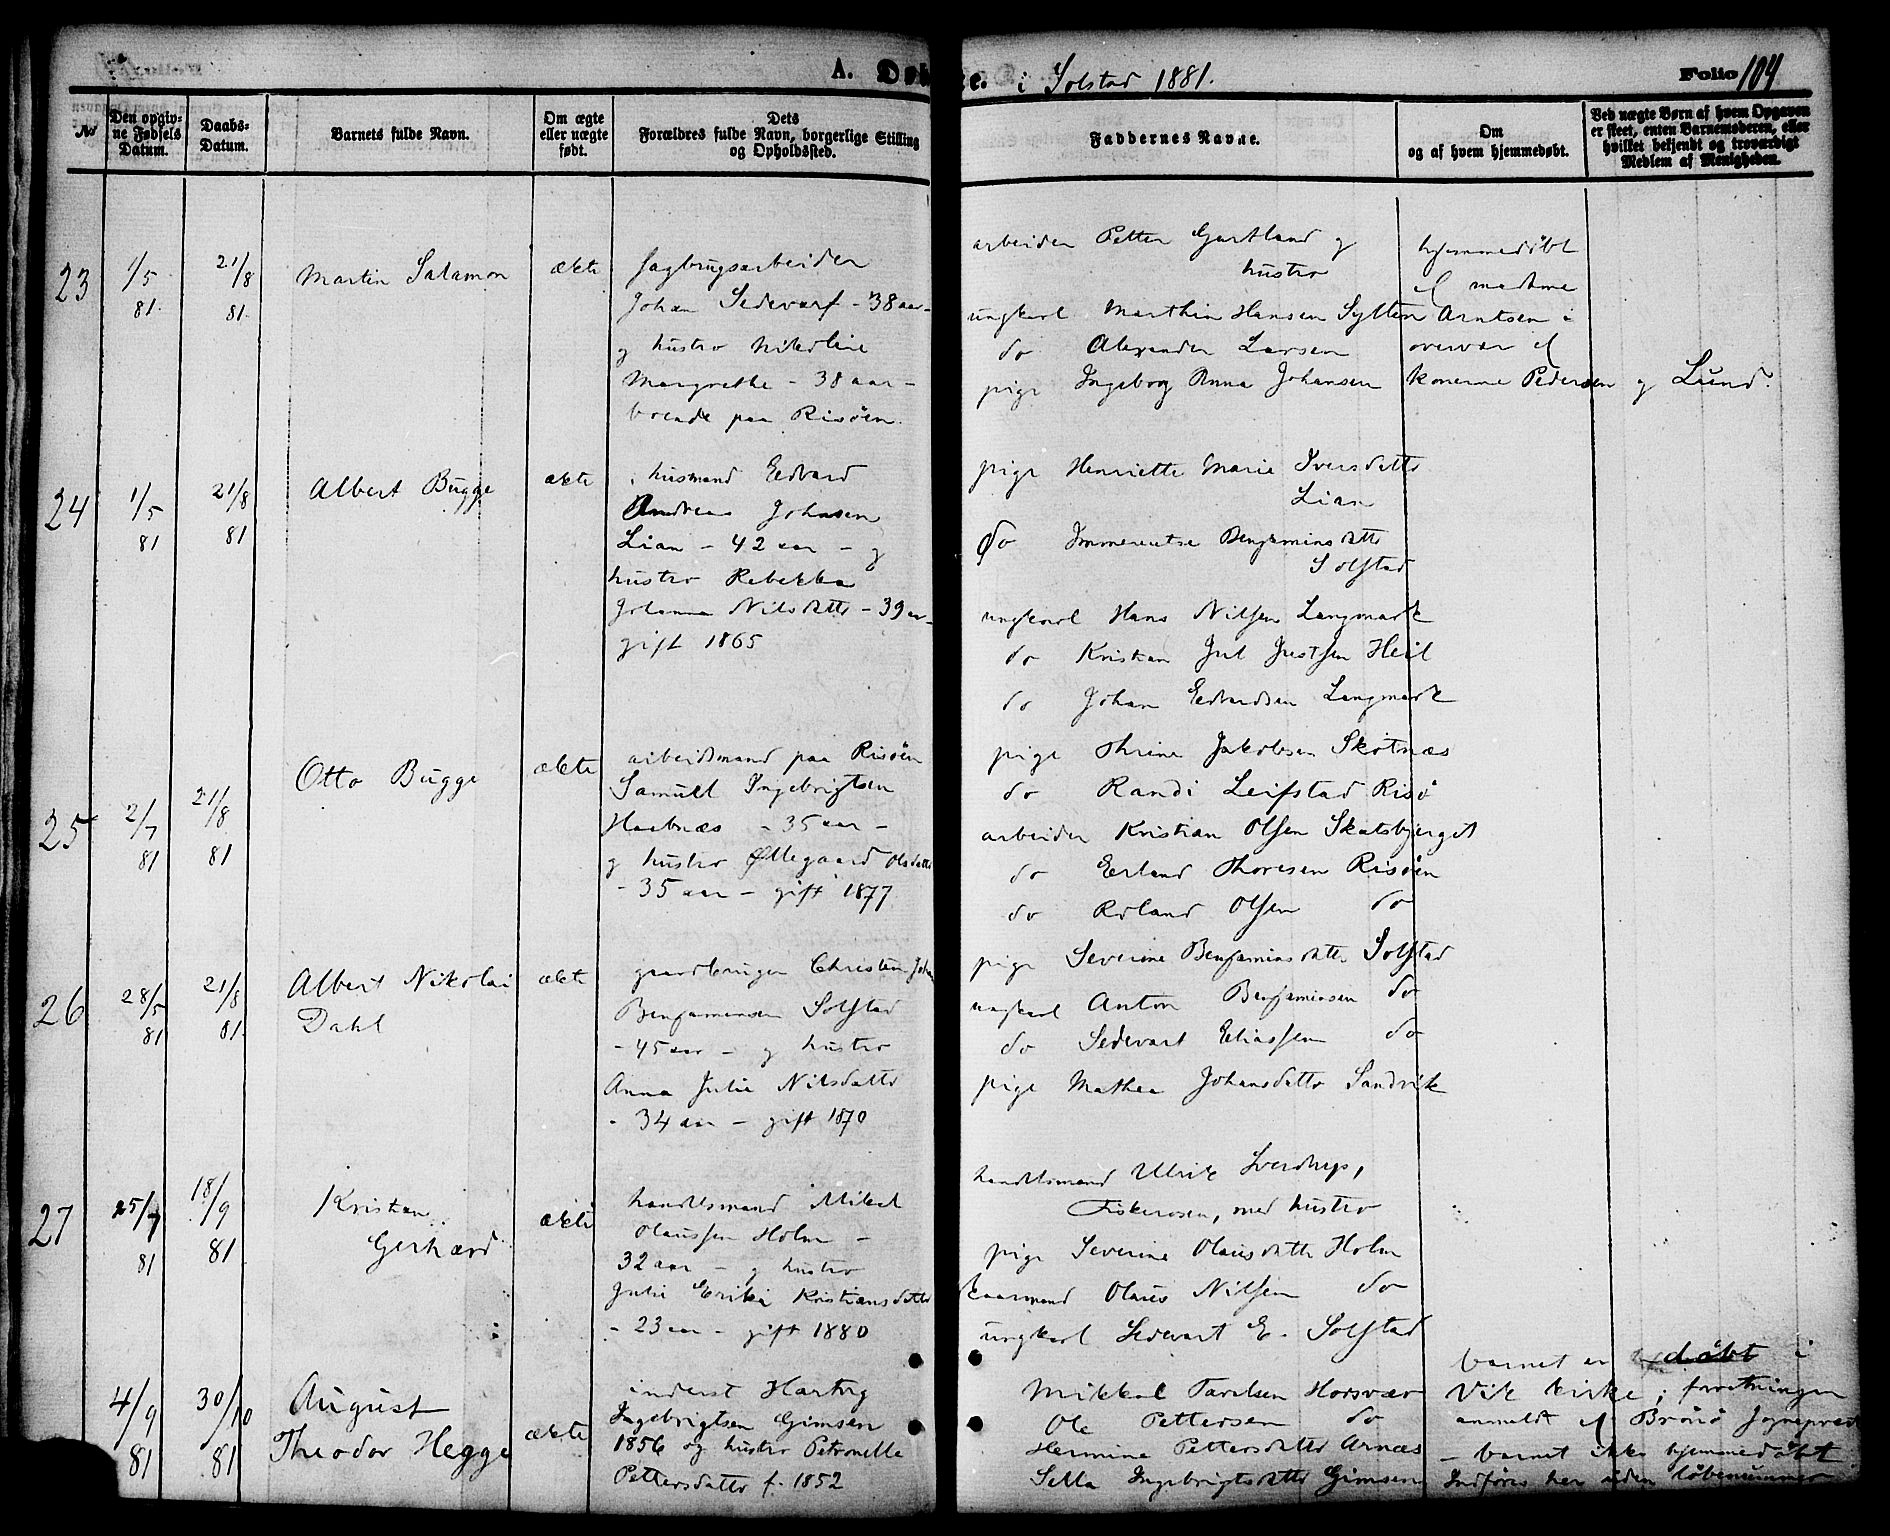 A. Døb
te. i Solstad 1881.
Folio 104
No
Den opgiv-
ne Fødsels
Datum.
Daabs-
Datum.
Barnets fulde Navn.
Om ægte
eller uægte
født.
Dets
Forældres fulde Navn, borgerlige Stilling
og Opholdssted.
Faddernes Navne.
Om
og af hvem hjemmedøbt.
Ved uægte Børn af hvem Opgaven
er skeet, enten Barnemoderen, eller
hvilket bekjendt og troværdigt
Medlem af Menigheden.
23
1/5
81.
21/8
81.
Martin Salamon
ækte
sagbrugsarbeider
Johan Sedevarf - 38 aar -
og hustro Nikoline
Margrethe - 38 aar -
boende paa Risöen.
arbeider Petter Gartland og
hustro
ungkarl Marthin Hansen Sylten
do Alexander Larsen
pige Ingeborg Anna Johansen
hjemmedöbt
af madame
Arntsen i
overvær af
konerne Pedersen og Lund.
24
1/5
81
21/8
81
Albert Bugge
ækte
husmand Edvard
Andreas Johnsen
Lian - 42 aar - og
hustro Rebekka
Johanna Nilsdatter - 39 aar -
gift 1865
pige Henriette Marie Iversdatter
Lian
do Immerentse Benjaminsdatter
Solstad
ungkarl Hans Nilsen Langmark
do Kristian Jul Justsen Heil
do Johan Edvardsen Langmark
25
2/7
81
21/8
81
Otto Bugge
ækte
arbeidsmand paa Risöen
Samuel Ingebrigtsen
Haabnæs - 35 aar -
og hustro Ollegaard Olsdatter
- 35 aar - gift 1877
pige Thrine Jakobsen Skotnæs
do Randi Leifstad Risö
arbeider Kristian Olsen Skatsbjerget
do Erland Thoresen Risöen
do Roland Olsen do
26
28/5
81
21/8
81.
Albert Nikolai
Dahl
ækte
gaardbruger Christen Johan
Benjaminsen Solstad
- 45 aar - og hustro
Anna Julie Nilsdatter
- 34 aar - gift 1870
pige Severine Benjaminsdatter Solstad
ungkarl Anton Benjaminsen do
do Sedevart Eliassen do
pige Mathea Johansdatter Sandvik
27
25/7
81
18/9
81
Kristian
Gerhard
ækte
handelsmand Mikal
Olaussen Holm -
32 aar - og hustro
Julie Erika Kristiansdatter
- 23 aar - gift 1880
handelsmand Ulrik Sverdrup,
Fiskerosen, med hustro
pige Severine Olausdatter Holm
kaarmand Olaus Nilsen do
ungkarl Sedevart E. Solstad
4/9
81
30/10
81
August
Theodor Hegge
ækte
inderst Hartvig
Ingebrigtsen Gimsen
1856 og hustro Petronelle
Pettersdatter f. 1852
Mikkal Tarelsen Horsvær
Ole Pettersen do
Hermine Pettersdatter Arnæs
Sella Ingebrigtsdatter Gimsen
barnet er döbt i
Vik kirke; forretningen
anmeldt af Brönö Sognepræst
- barnet ikke hjemmedöbt
Indföres her uden löbenummer